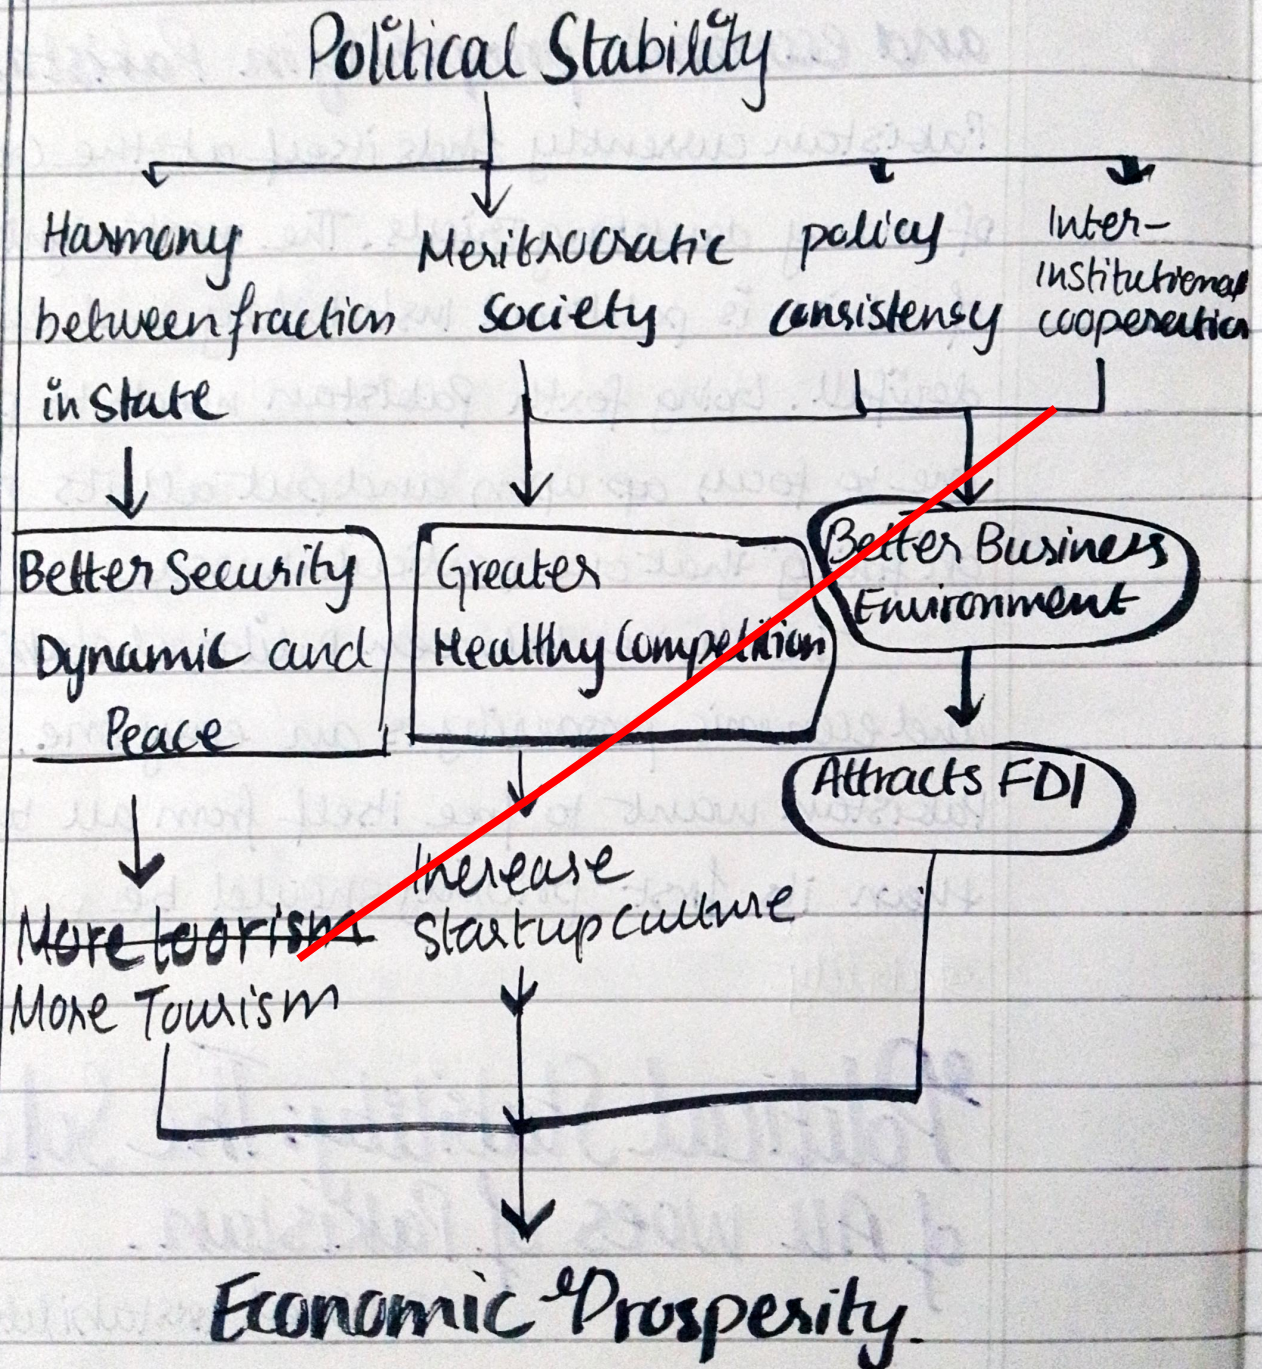 Political Stability
Harmony
between fraction
in state
Meritrocratic
society
policy
consistensy
Inter-
institutional
cooperation
Better Security
Dynamic and
Peace
Greater
Healthy Competition
Better Business
Environment
Attracts FDI
More toorism
More Tourism
Increase
Startup culture
Economic Prosperity.